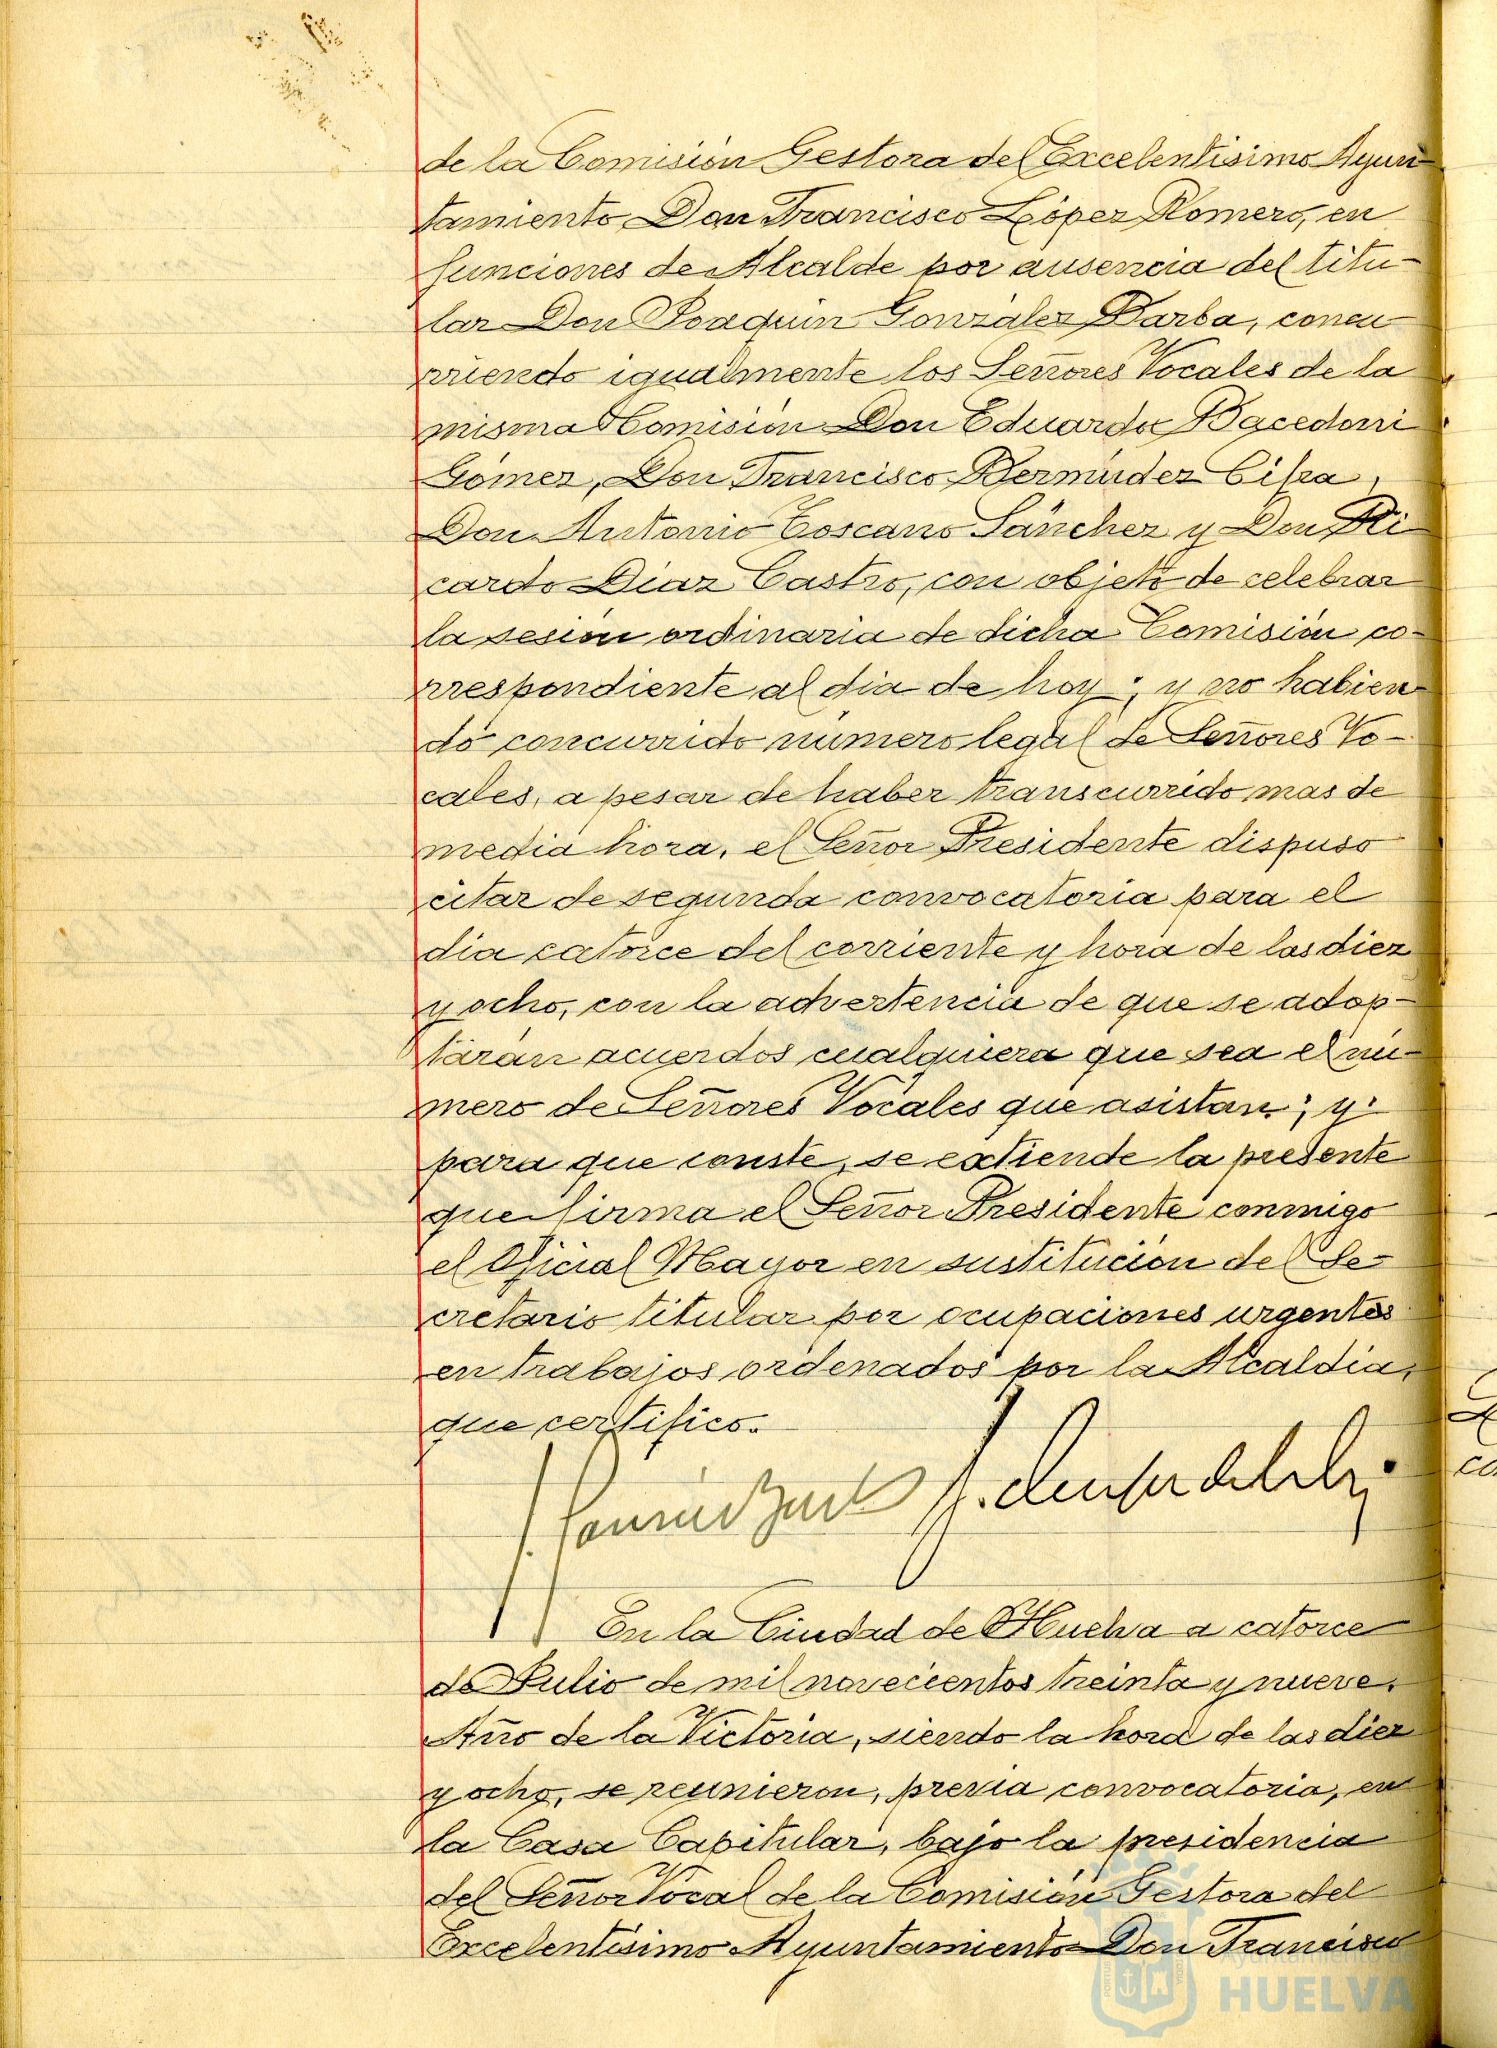 de la Comisión Gestora del Excelentisimo Ayun
tamiento Don Francisco López Romero, en
funciones de Alcalde por ausencia del titu-
lar Don Joaquin González Barba, concu
rriendo igualmente los Señores Vocales de la
misma Comisión Don Eduardo Bacedoni
Gómez, Don Francisco Bermúdez Cifra,
Don Antonio Toscano Sánchez y Don Ri
cardo Diaz Castro, con objeto de celebrar
la sesión ordinaria de dicha Comisión co-
rrespondiente al dia de hoy; y no habien
do concurrido número legal de Señores Vo-
cales, a pesar de haber transcurrido mas de
media hora, el Señor Presidente dispuso
citar de segunda convocatoria para el
dia catorce del corriente y hora de las diez
y ocho, con la advertencia de que se adop-
tarán acuerdos cualquiera que sea el nú-
mero de Señores Vocales que asistan; y
para que conste, se extiende la presente
que firma el Señor Presidente conmigo
el Oficial Mayor en sustitución del Se-
cretario titular por ocupaciones urgentes
en trabajos ordenados por la Alcaldia,
que certifico.
En la Ciudad de Huelva a catorce
de Julio de mil novecientos treinta y nueve.
Año de la Victoria, siendo la hora de las diez
y ocho, se reunieron, previa convocatoria, en
la Casa Capitular, bajo la presidencia
del Señor Vocal de la Comisión Gestora del
Excelentisimo Ayuntamiento Don Francisco
Ayuntamiento de
HUELVA